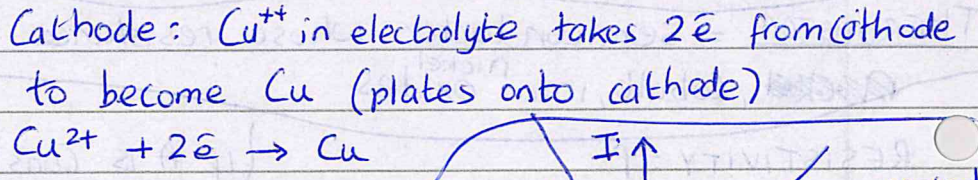 Cathode: Cu⁺⁺ in electrolyte takes 2ē from cathode
to become Cu (plates onto cathode)
Cu²⁺ + 2ē → Cu
I ↑